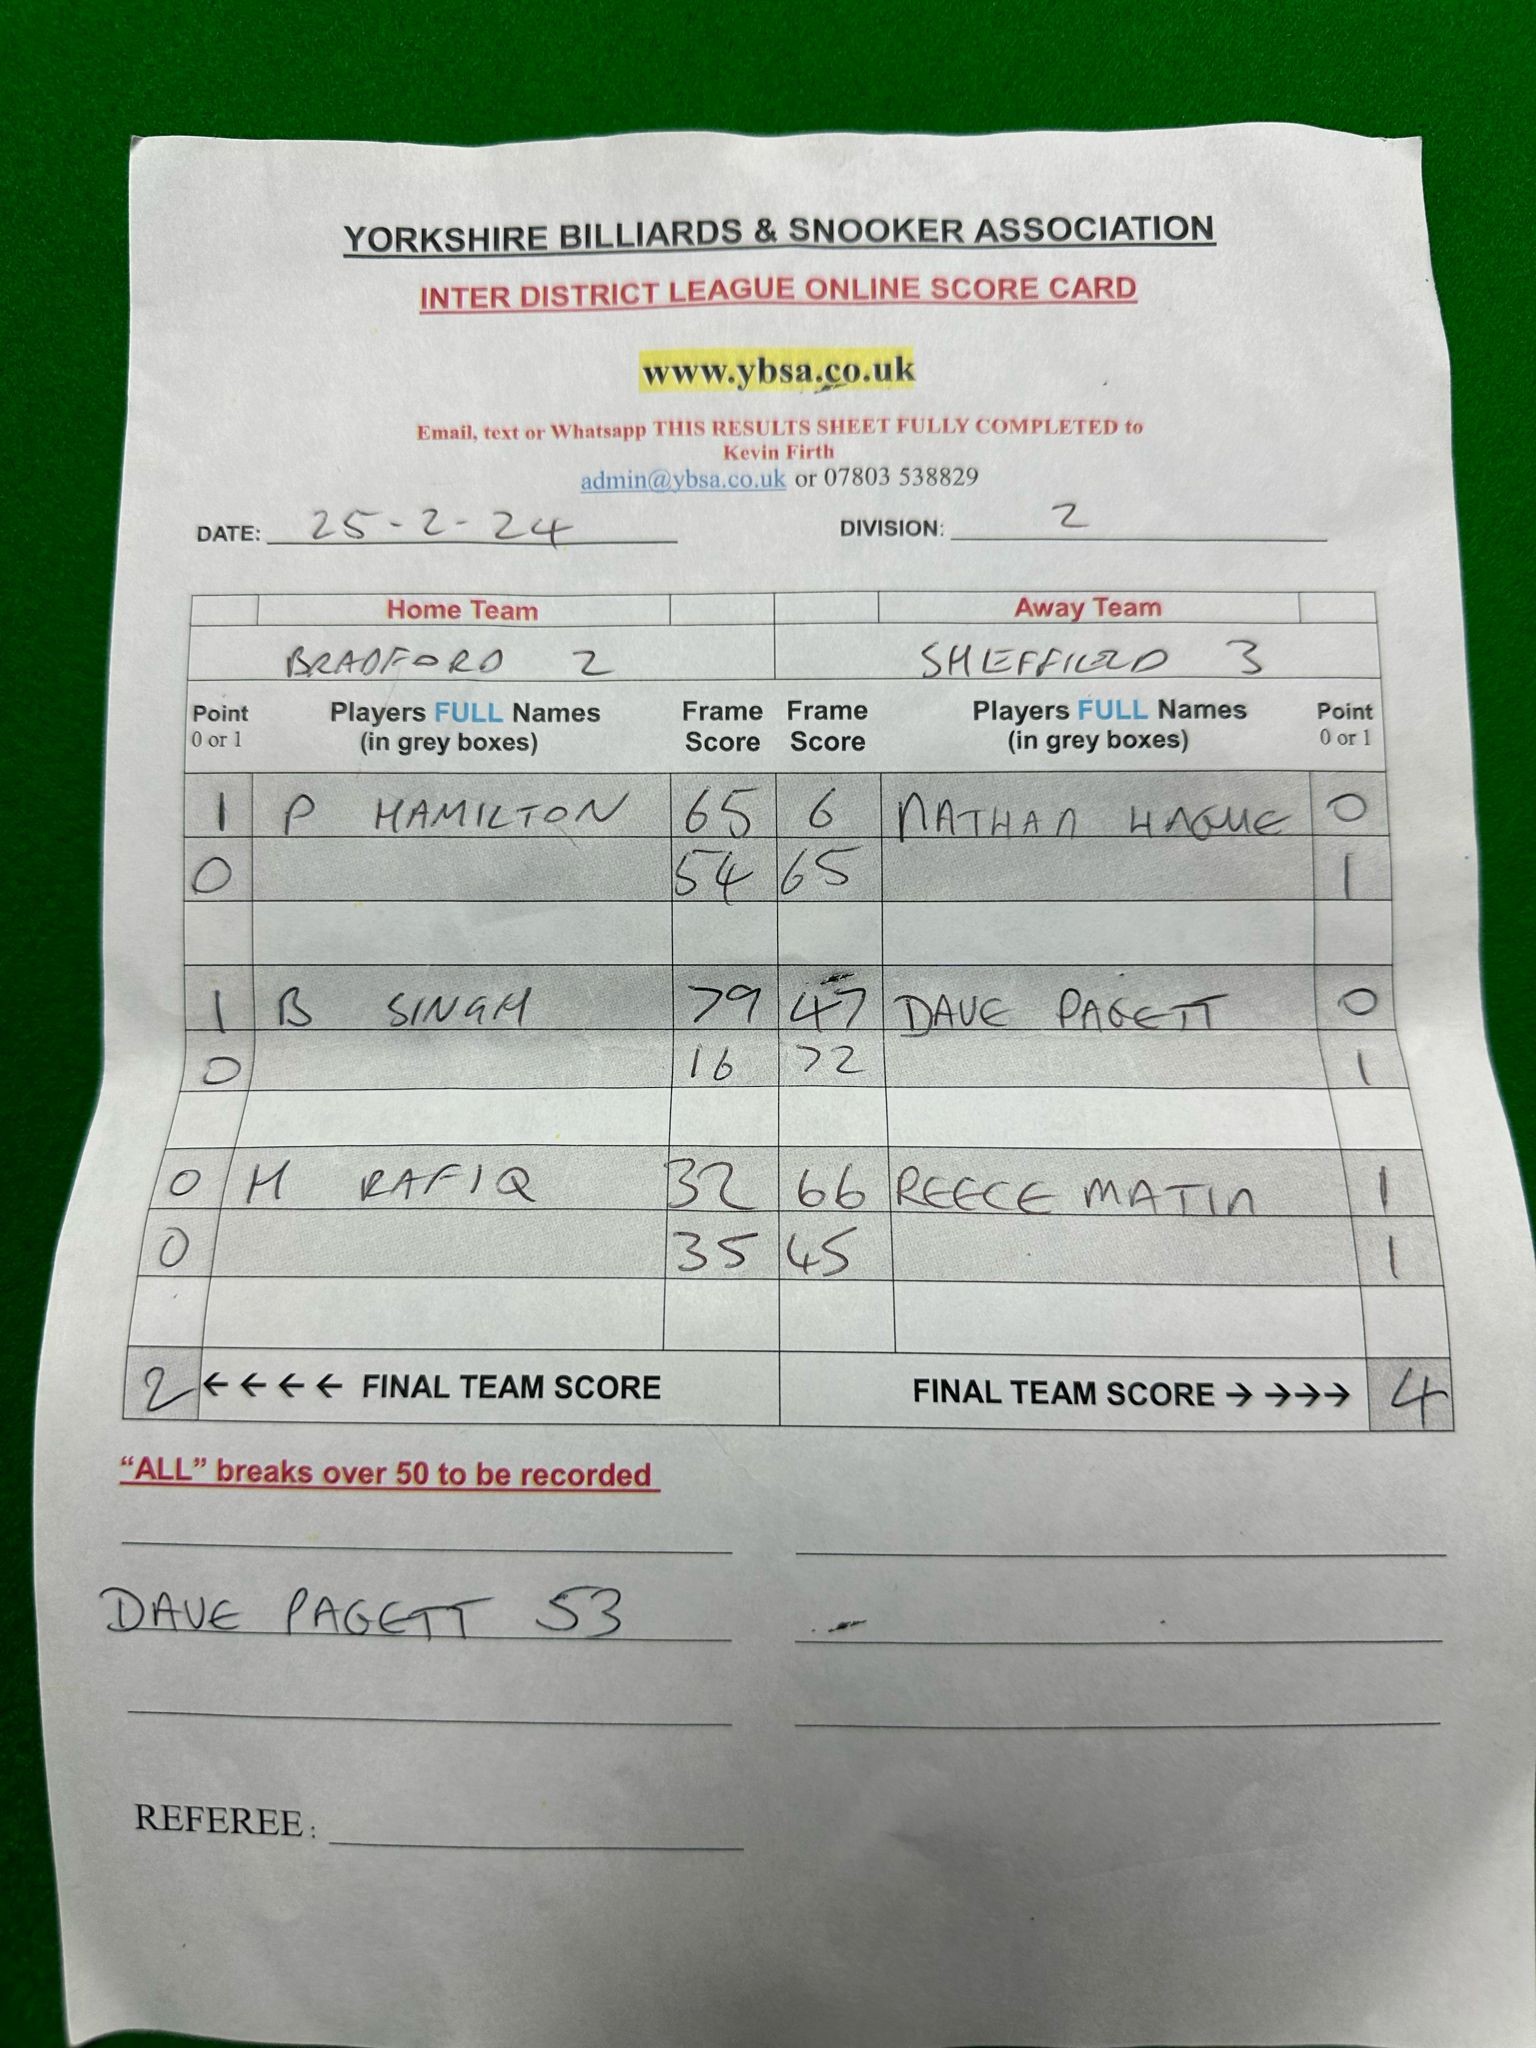 YORKSHIRE BILLIARDS & SNOOKER ASSOCIATION
INTER DISTRICT LEAGUE ONLINE SCORE CARD
www.ybsa.co.uk
Email, text or Whatsapp THIS RESULTS SHEET FULLY COMPLETED to
Kevin Firth
admin@ybsa.co.uk or 07803 538829
DATE: 25-2-24 DIVISION: 2
Home Team Away Team
BRADFORD 2 SHEFFIELD 3
Point Players FULL Names Frame Frame Players FULL Names Point
0 or 1 (in grey boxes) Score Score (in grey boxes) 0 or 1
1 P HAMILTON 65 6 NATHAN HAGUE 0
0 54 65 1
1 B SINGH 79 47 DAVE PAGETT 0
0 16 72 1
0 M RAFIQ 32 66 REECE MATIN 1
0 35 45 1
2 ←←←← FINAL TEAM SCORE FINAL TEAM SCORE → →→→ 4
“ALL” breaks over 50 to be recorded
DAVE PAGETT 53
REFEREE: